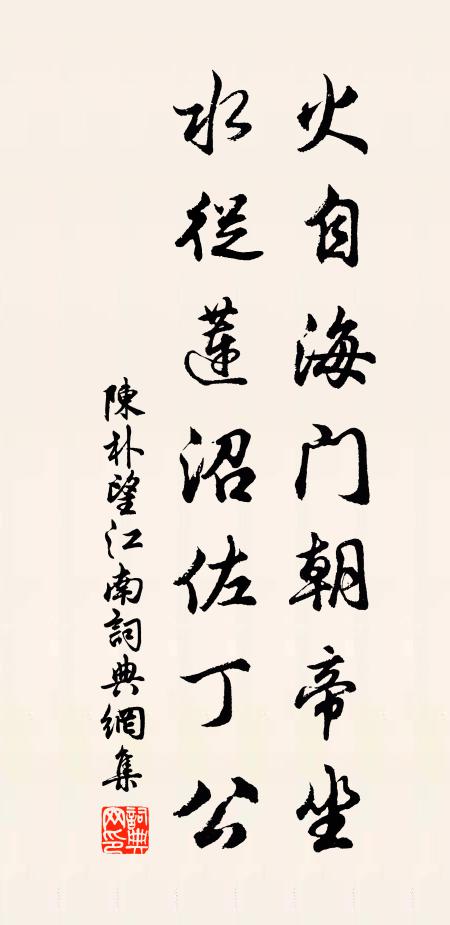 火自海门朝帝坐
水從蓮沼佐丁公
陳朴望江南詞典網集
詞典網印